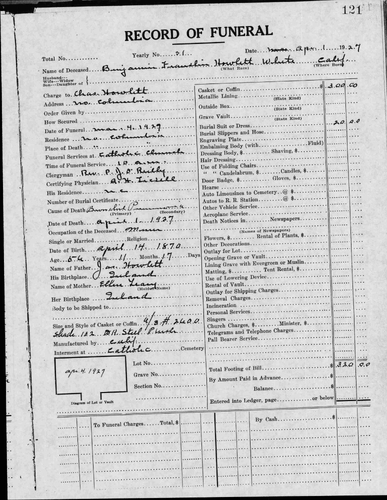 121
RECORD OF FUNERAL
Total No. Yearly No. 21 Date Apr. 1 1927
Name of Deceased Benjamin Franklin Howlett White Calif.
(What Race) (Where Born)
Husband
Wife-Widow of
Son-Daughter
Charge to Chas. Howlett
Address No. Columbia
Order Given by
How Secured
Date of Funeral 4. 1927
Residence No. Columbia
Place of Death "
Funeral Services at Catholic Church
Time of Service 10 a.m.
Clergyman Rev. P. J. O'Reilly
Certifying Physician
His Residence
Number of Burial Certificate
Cause of Death
(Primary) (Secondary)
Date of Death April 1 1927
Occupation of the Deceased Miner
Single or Married Religion
Date of Birth April 14. 1870
Age 56 Years 11 Months 17 Days
Name of Father Howlett
His Birthplace Ireland
Name of Mother Ellen Leary
Her Birthplace Ireland
Body to be Shipped to
Size and Style of Casket or Coffin 6/3 # 2600
Shade 122
Manufactured by
Interment at Catholic Cemetery
Lot No.
Grave No.
Section No.
apr 4 1927
Diagram of Lot or Vault
Casket or Coffin $ 300.00
Metallic Lining
(State Kind)
Outside Box
(State Kind)
Grave Vault
(State Kind)
Burial Suit or Dress 20.00
Burial Slippers and Hose
Engraving Plate
Embalming Body (with Fluid)
Dressing Body, $ Shaving, $
Hair Dressing
Use of Folding Chairs
" " Candelabrum, $ Candles, $
Door Badge, $ Gloves, $
Hearse
Auto Limousines to Cemetery @ $
Autos to R. R. Station @ $
Other Vehicle Service
Aeroplane Service
Death Notices in Newspapers
(Names of Newspapers)
Flowers, $ Rental of Plants, $
Other Decorations
Outlay for Lot
Opening Grave or Vault
Lining Grave with Evergreen or Muslin
Matting, $ Tent Rental, $
Use of Lowering Device
Rental of Vault
Outlay for Shipping Charges
Removal Charges
Incineration
Personal Services
Singers
Church Charges, $ Minister, $
Telegrams and Telephone Charges
Pall Bearer Service
Total Footing of Bill $ 320.00
By Amount Paid in Advance
Balance $
Entered into Ledger, page or below
To Funeral Charges. Total, $ $ By Cash $